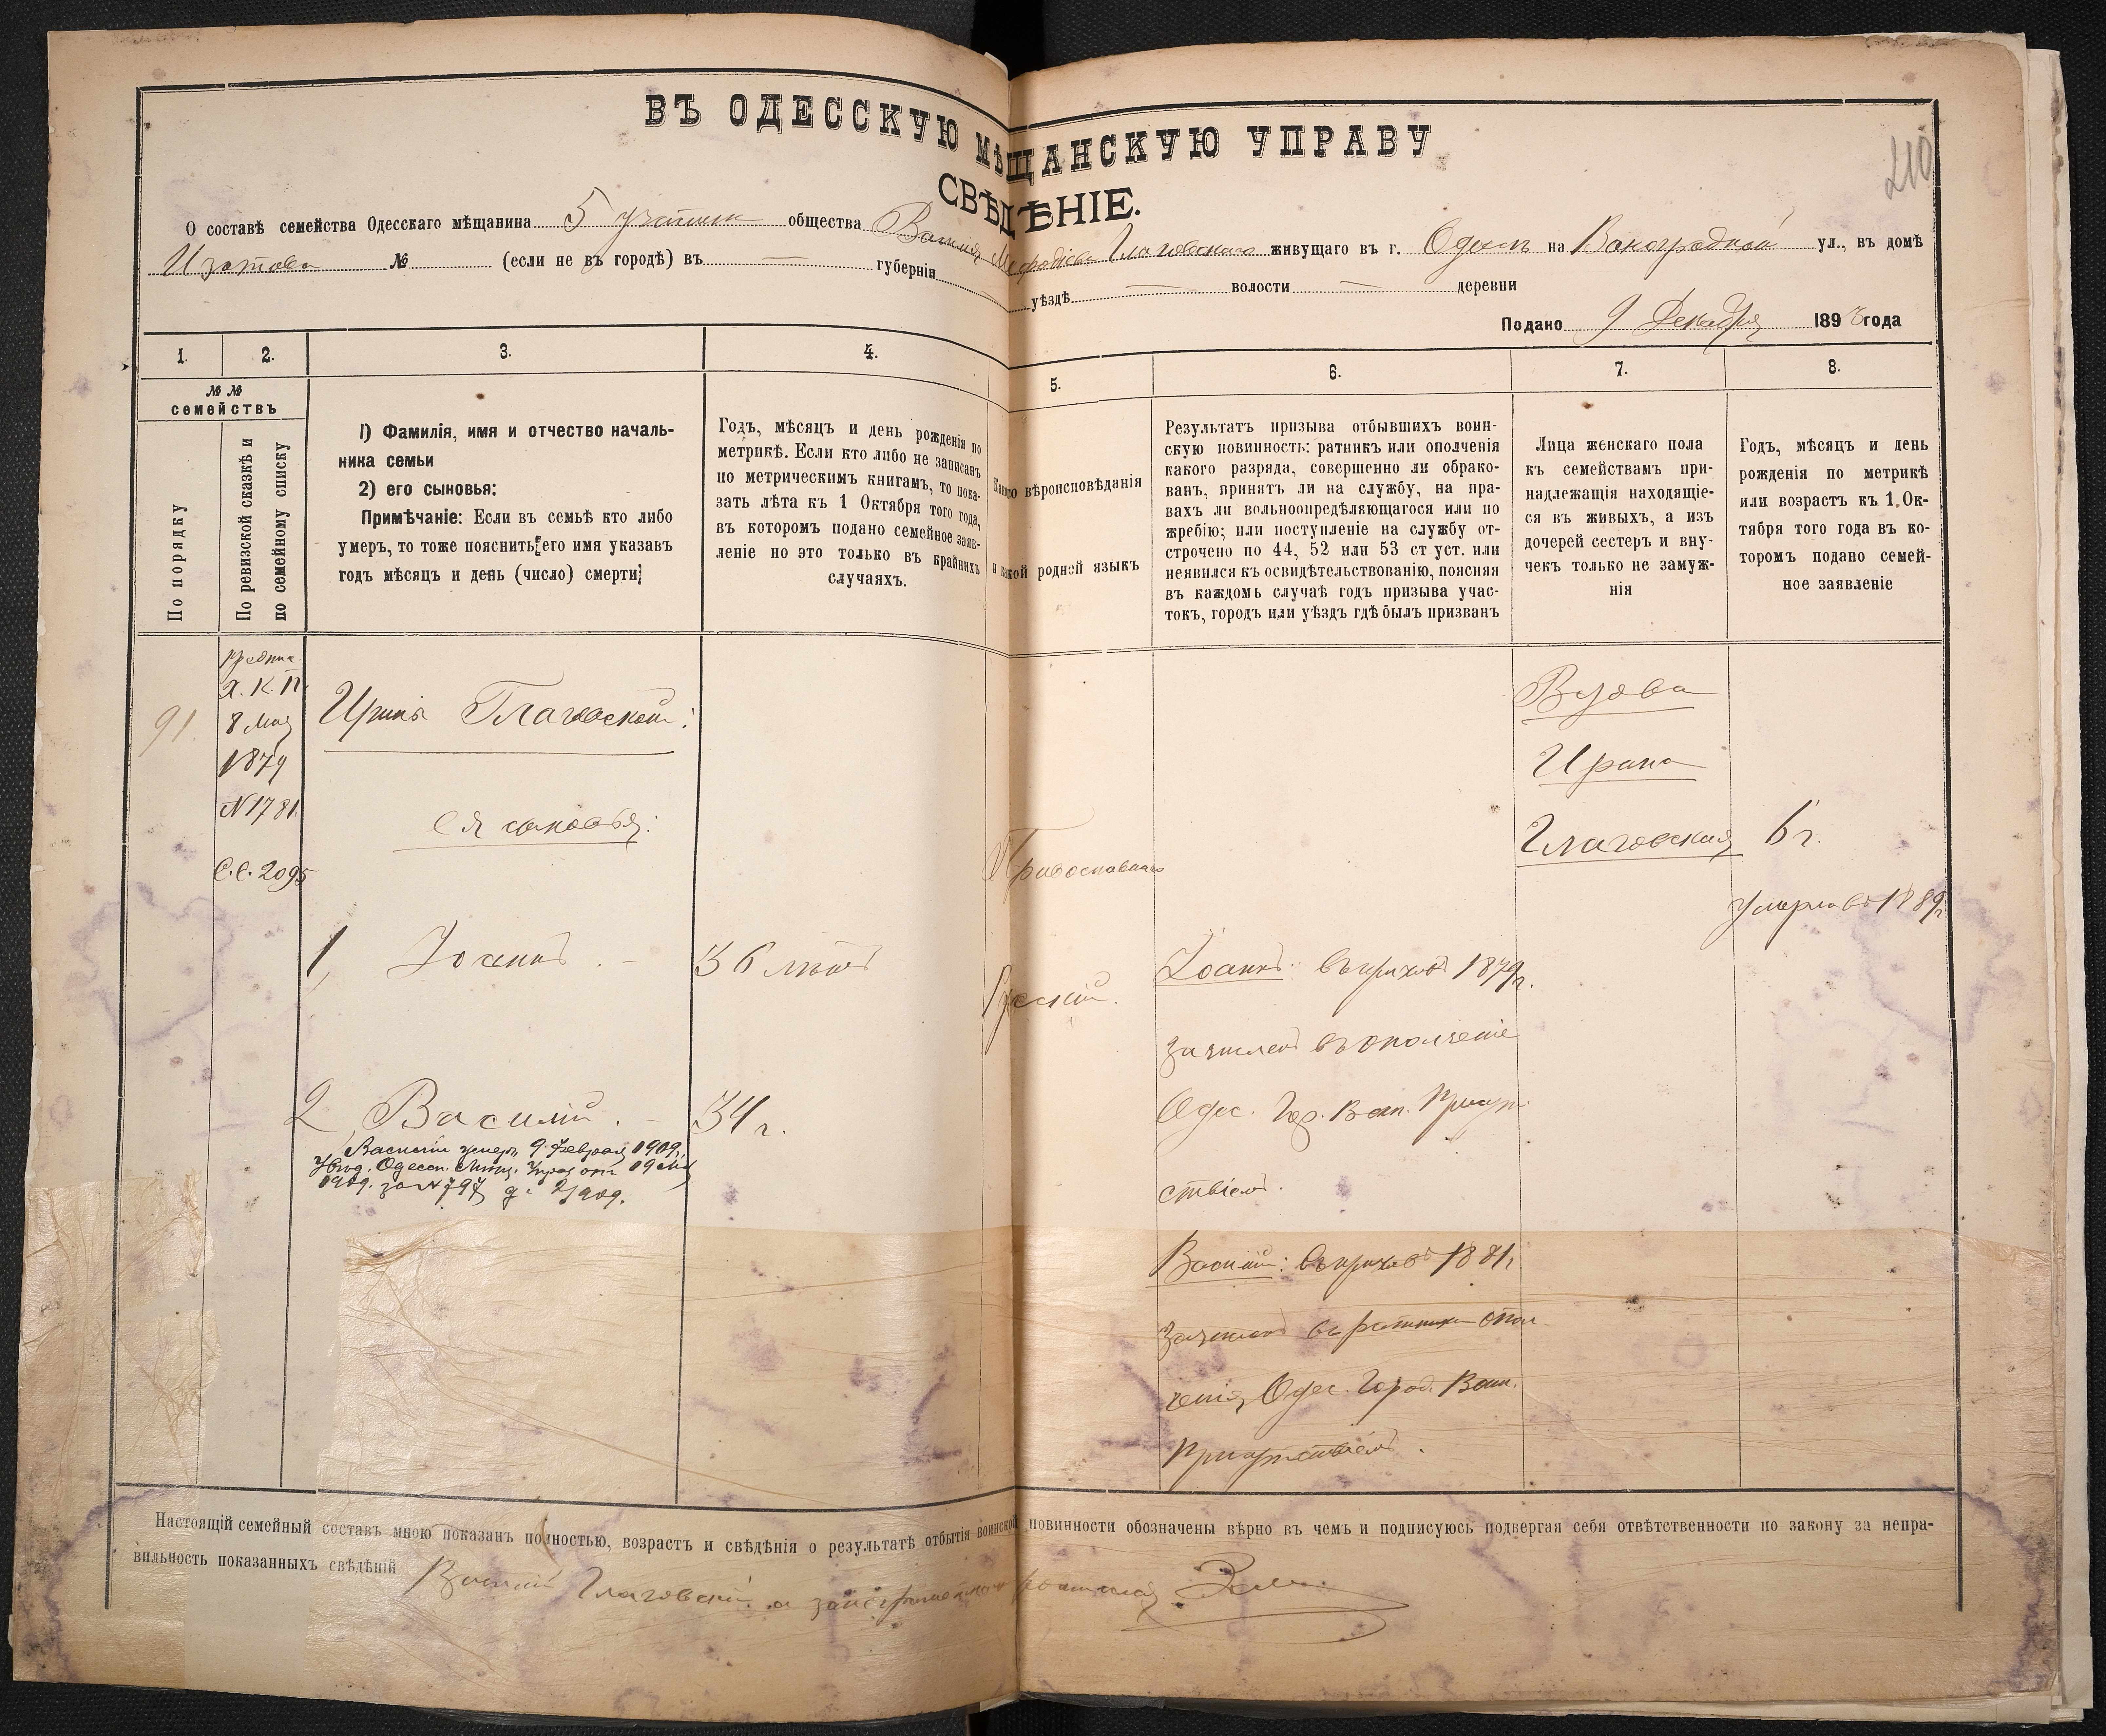 ВЪ ОДЕССКУЮ МѢЩАНСКУЮ УПРАВУ
СВѢДѢНІЕ.
210
О составѣ семейства Одесскаго мѣщанина 5 участка общества Василія Глаговскаго живущаго въ г. Одессѣ на Виноградной ул., въ домѣ
Изотова № (если не въ городѣ) въ — губерніи уѣздѣ — волости — деревни
Подано 9 Декабря 189 года
1. 2. 3. 4. 5. 6. 7. 8.
№ №
семействъ
По порядку
По ревизской сказкѣ и
по семейному списку
1) Фамилія, имя и отчество началь-
ника семьи
2) его сыновья:
Примѣчаніе: Если въ семьѣ кто либо
умеръ, то тоже пояснить его имя указавъ
годъ мѣсяцъ и день (число) смерти
Годъ, мѣсяцъ и день рожденія по
метрикѣ. Если кто либо не записанъ
по метрическимъ книгамъ, то пока-
зать лѣта къ 1 Октября того года,
въ которомъ подано семейное заяв-
леніе но это только въ крайнихъ
случаяхъ.
Какого вѣроисповѣданія
и какой родной языкъ
Результатъ призыва отбывшихъ воин-
скую повинность: ратникъ или ополченія
какого разряда, совершенно ли обрако-
ванъ, принятъ ли на службу, на пра-
вахъ ли вольноопредѣляющагося или по
жребію; или поступленіе на службу от-
строчено по 44, 52 или 53 ст уст. или
неявился къ освидѣтельствованію, поясняя
въ каждомъ случаѣ годъ призыва учас-
токъ, городъ или уѣздъ гдѣ былъ призванъ
Лица женскаго пола
къ семействамъ при-
надлежащія находящіе-
ся въ живыхъ, а изъ
дочерей сестеръ и вну-
чекъ только не замуж-
нія
Годъ, мѣсяцъ и день
рожденія по метрикѣ
или возрастъ къ 1 Ок-
тября того года въ ко-
торомъ подано семей-
ное заявленіе
91.
Х. К. П.
8 Мая
1879
N 1781.
С.С. 2095
Ирина Глаговской:
ея сыновья:
1, Іоаннъ. —
36 лѣтъ
2, Василій. —
34 г.
Василій умеръ 9 Февраля 1909 г.
Увѣд. Одесск. Мѣщ. Упр. отъ 19 Мая
1909. за № 797 д. 2/909.
Православнаго
Русскій.
Іоаннъ: въ призывъ 1879 г.
зачисленъ въ ополченіе
Одес. Гор. Воин. Присут-
ствіемъ.
Василій: въ призывъ 1881 г.
Зачисленъ въ ратники опол
ченія Одес. Город. Воин.
Присутствіемъ.
Вдова
Ирина
Глаговская
6 г.
Умерла въ 1889 г.
Настоящій семейный составъ мною показанъ полностью, возрастъ и свѣдѣнія о результатѣ отбытія воинской повинности обозначены вѣрно въ чемъ и подписуюсь подвергая себя отвѣтственности по закону за непра-
вильность показанныхъ свѣдѣній Василій Глаговскій а за неграмотнаго росписался